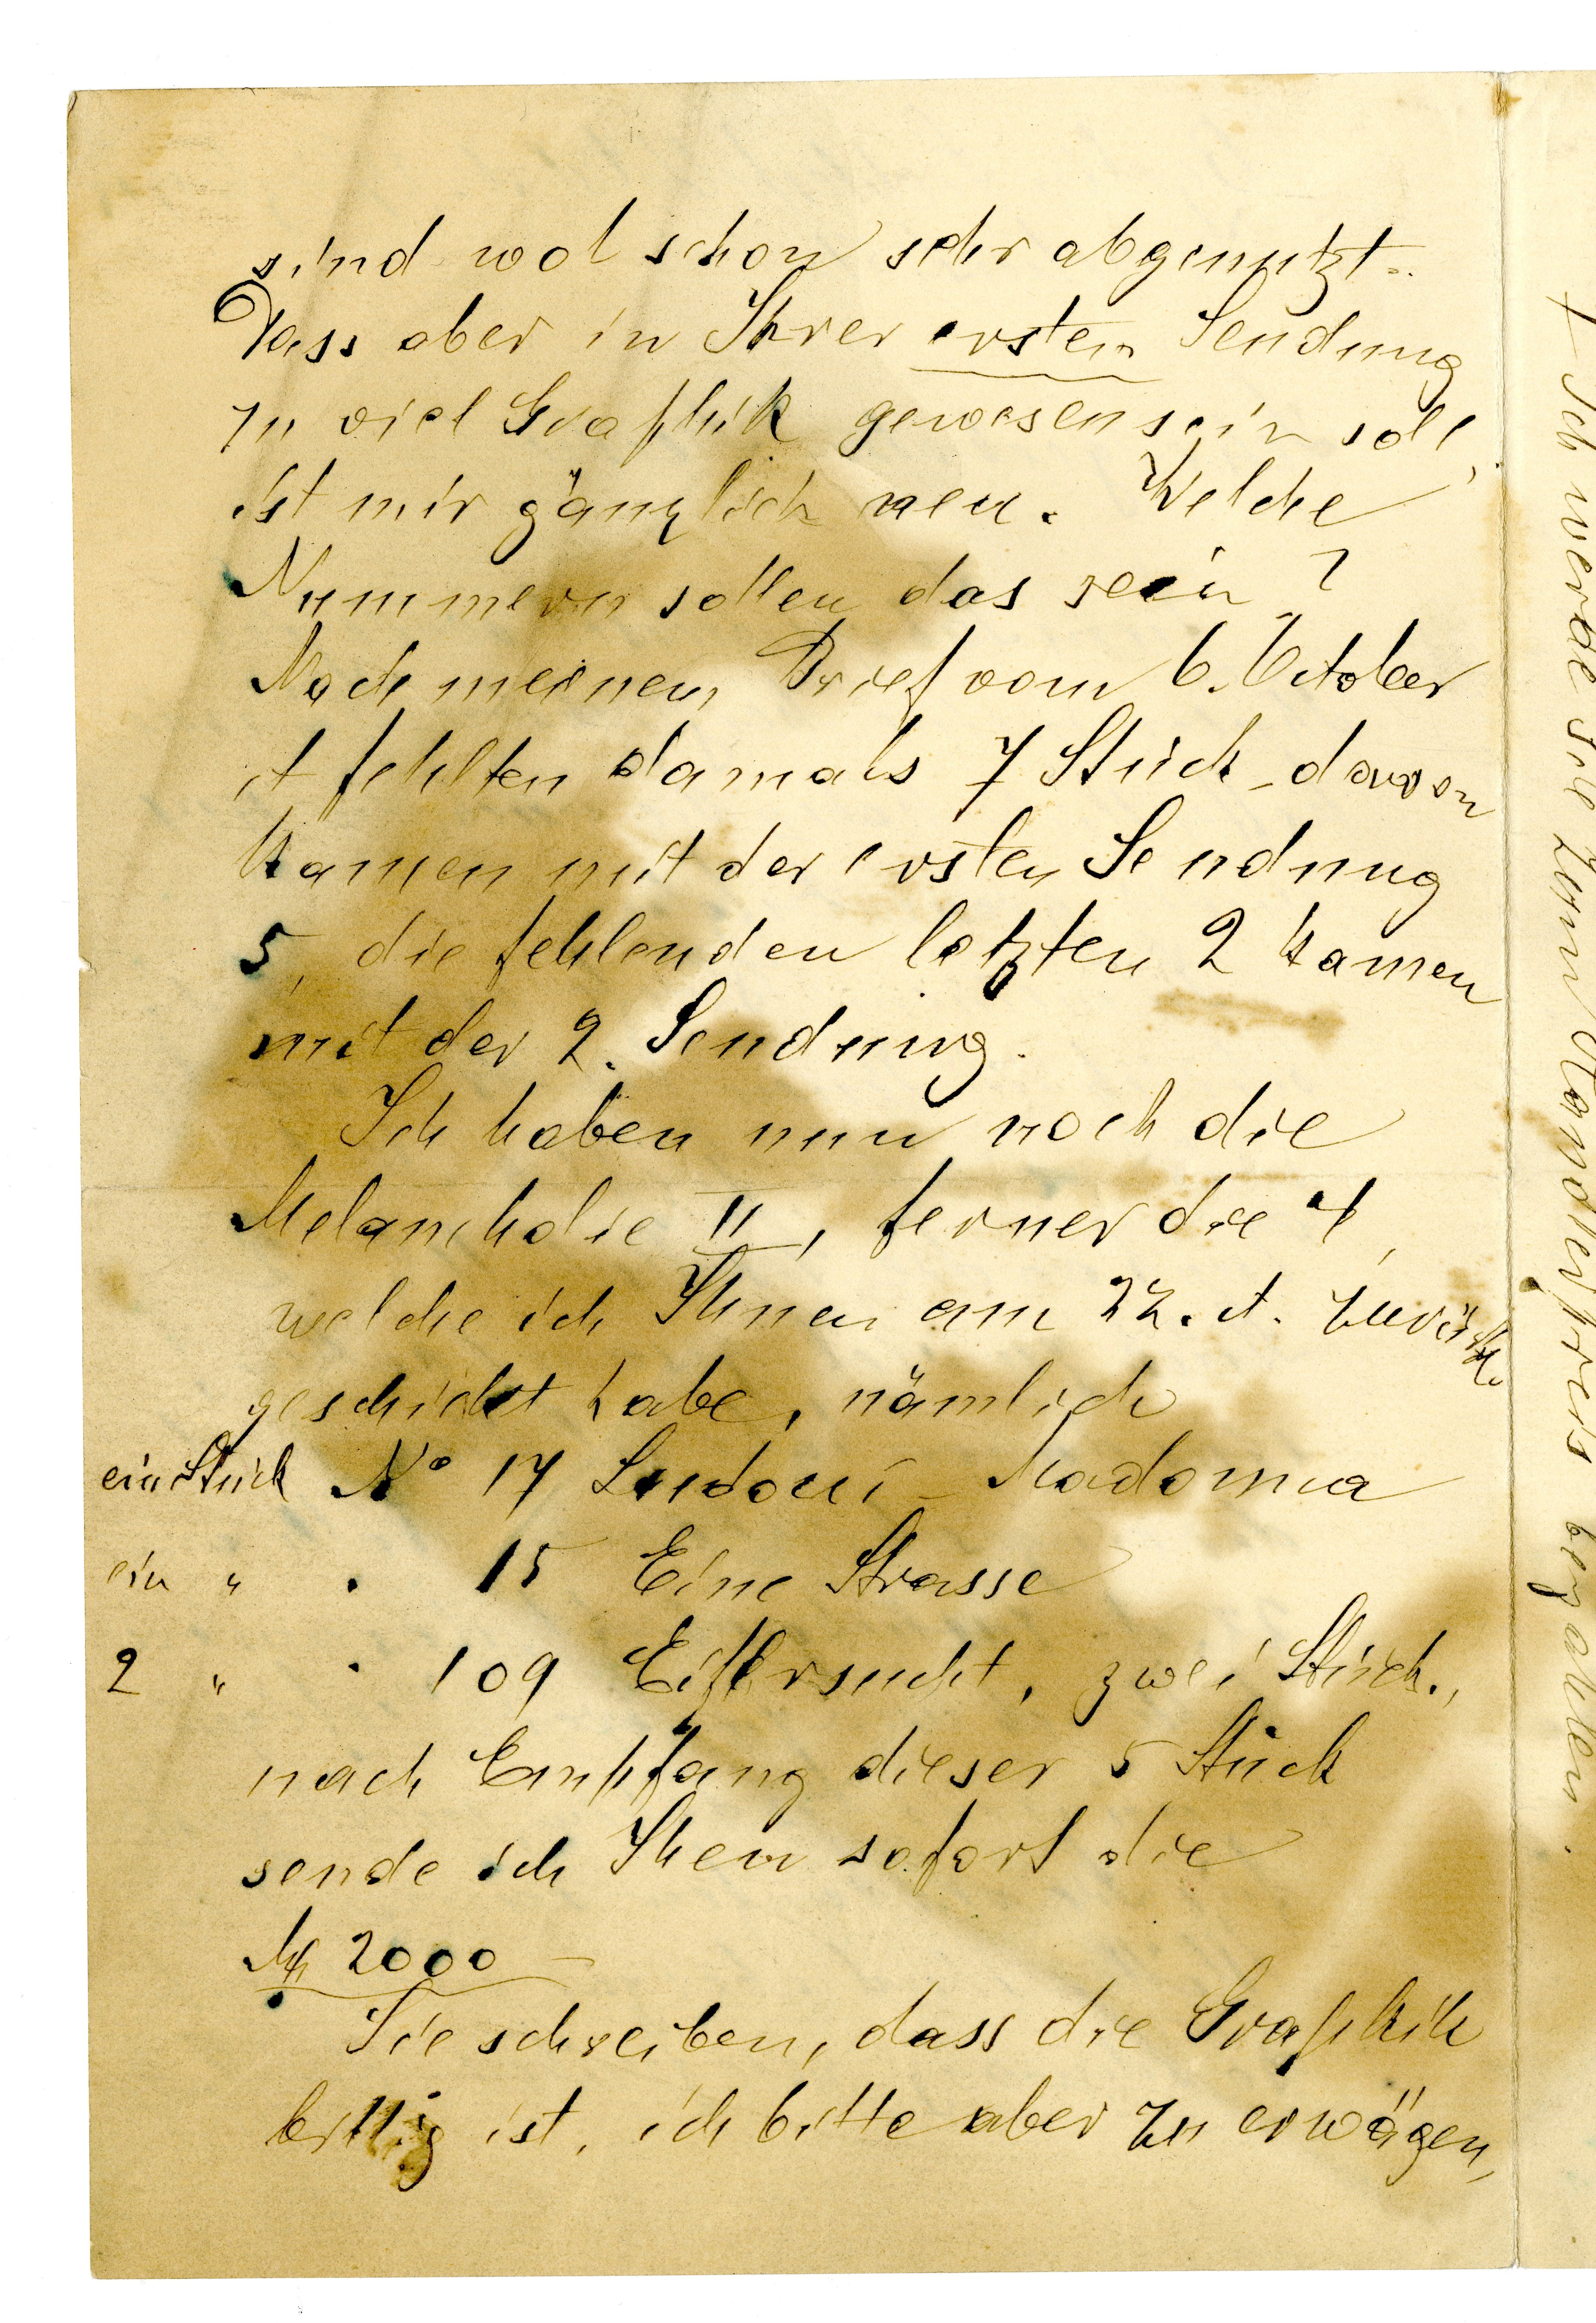 sind wol schon sehr abgenutzt.
Dass aber in Ihrer ersten Sendung
zu viel Graphik gewesen sein soll,
ist mir gänzlich neu. Welche
Nummern sollen das sein?
Nach meinem Brief vom 6. October
ct fehlten damals 7 Stück - davon
kamen mit der ersten Sendung
5, die fehlenden letzten 2 kamen
mit der 2. Sendung.
Ich haben nun noch die
Melancholie II, ferner die 4,
welche ich Ihnen am 22. ct. zurück
geschickt habe, nämlich
ein Stück No 17 Madonna
ein " " 15 Eine Strasse
2 " " 109 Eifersucht, zwei Stück.,
nach Empfang dieser 5 Stück
sende ich Ihen sofort die
M 2000 -
Sie schreiben, dass die Graphik
billig ist, ich bitte aber zu erwägen,
Ich werde sie zum Händlerpreis bezahlen.